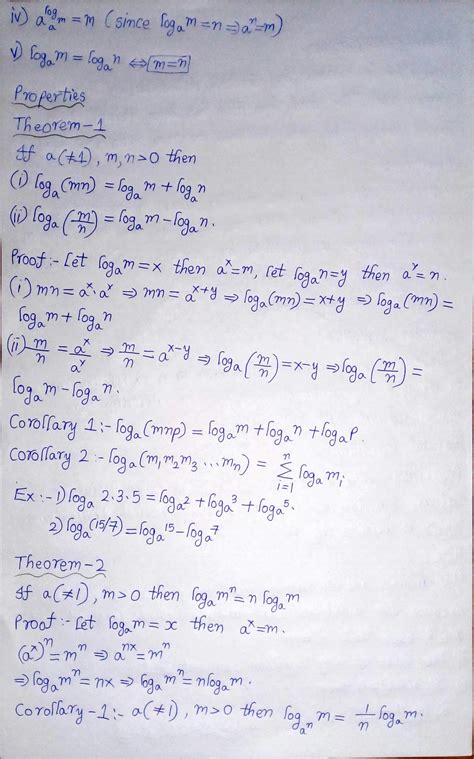 iv) a^{log_a m} = m (since log_a m = n ⇒ a^n = m)
v) log_a m = log_a n ⇔ m = n
Properties
Theorem-1
If a(≠1), m, n > 0 then
(i) log_a (mn) = log_a m + log_a n
(ii) log_a (m/n) = log_a m - log_a n.
Proof :- Let log_a m = x then a^x = m, let log_a n = y then a^y = n.
(i) mn = a^x. a^y ⇒ mn = a^{x+y} ⇒ log_a (mn) = x+y ⇒ log_a (mn) =
log_a m + log_a n
(ii) m/n = a^x/a^y ⇒ m/n = a^{x-y} ⇒ log_a (m/n) = x-y ⇒ log_a (m/n) =
log_a m - log_a n.
Corollary 1:- log_a (mnp) = log_a m + log_a n + log_a p.
Corollary 2 :- log_a (m_1 m_2 m_3 ... m_n) = ∑_{i=1}^{n} log_a m_i
Ex :- 1) log_a 2.3.5 = log_a 2 + log_a 3 + log_a 5.
2) log_a (15/7) = log_a 15 - log_a 7
Theorem-2
If a(≠1), m > 0 then log_a m^n = n log_a m
Proof :- Let log_a m = x then a^x = m.
(a^x)^n = m^n ⇒ a^{nx} = m^n
⇒ log_a m^n = nx ⇒ log_a m^n = n log_a m.
Corollary-1:- a(≠1), m > 0 then log_{a^n} m = 1/n log_a m.